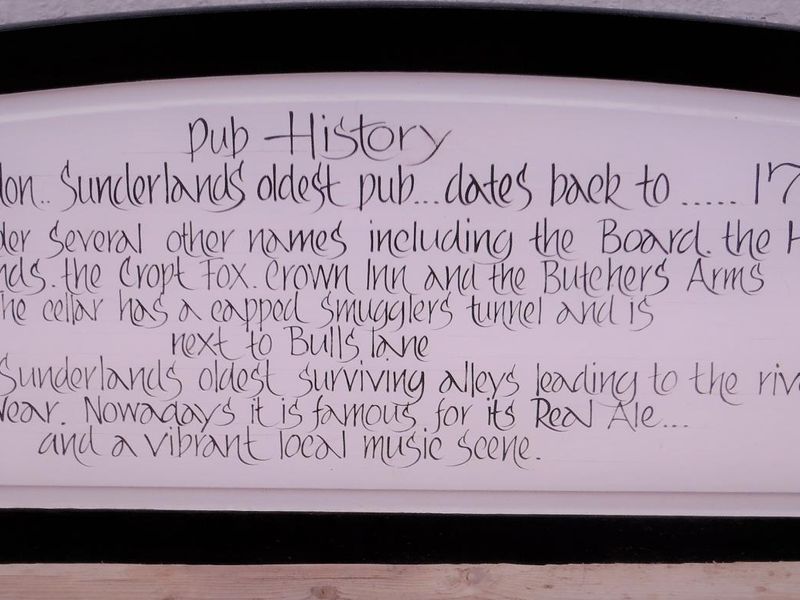 Pub History
don.. Sunderlands oldest pub... dates back to ...... 17
der several other names including the Board. the H
nds. the Cropt Fox. Crown Inn and the Butchers Arms
he cellar has a capped smugglers tunnel and is
next to Bulls lane
Sunderlands oldest surviving alleys leading to the riv
Wear. Nowadays it is famous for its Real Ale...
and a vibrant local music scene.